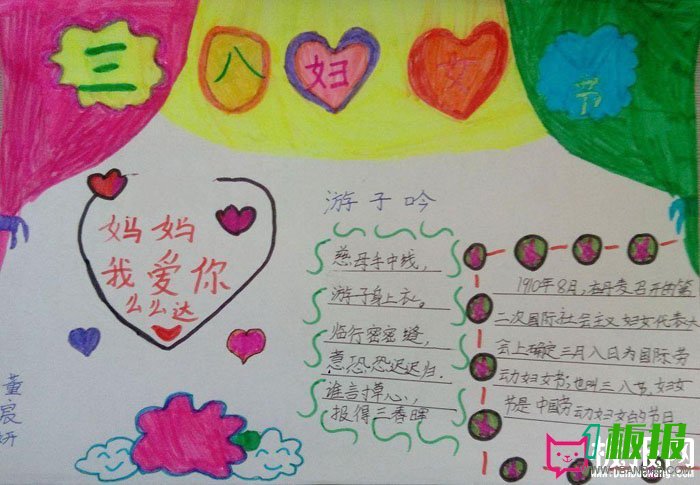 三八妇女节
妈妈
我爱你
么么达
游子吟
慈母手中线,
游子身上衣。
临行密密缝,
意恐恐迟迟归.
谁言寸草心,
报得三春晖
1910年8月,在丹麦召开的第
二次国际社会主义妇女代表大
会上确定三月八日为国际劳
动妇女节;也叫三八节,妇女
节是中国劳动妇女的节日
董宸妍
板报